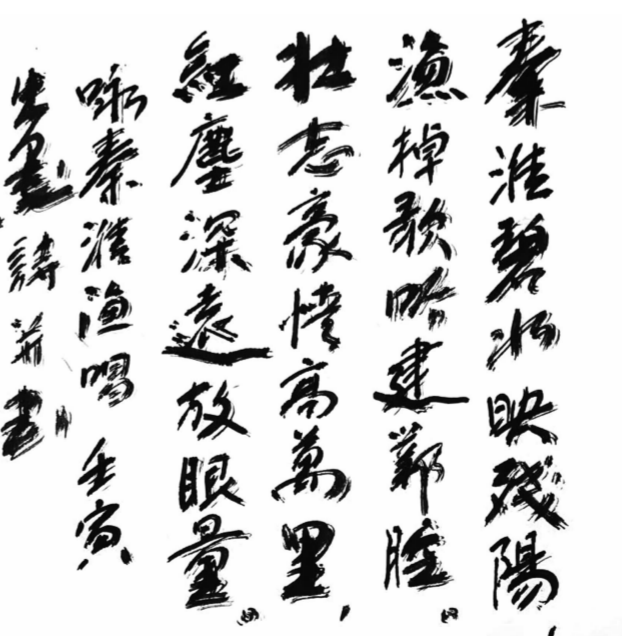 秦淮碧水映残陽
漁掉歌吟建鄴腔
壯志豪情高萬里
紅塵深遠放眼量
咏秦淮漁唱 壬寅
生墨詩并書